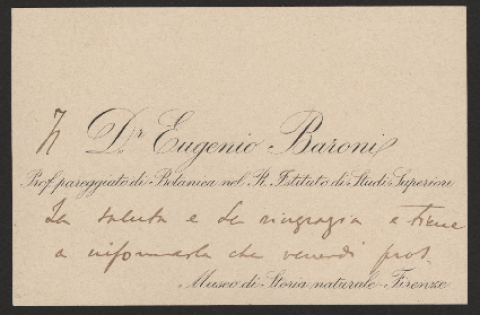 Il Dr. Eugenio Baroni
Prof. pareggiato di Botanica nel R. Istituto di Studi Superiori
La saluta e La ringrazia e tiene
a informarla che venerdì pros.
Museo di Storia naturale - Firenze